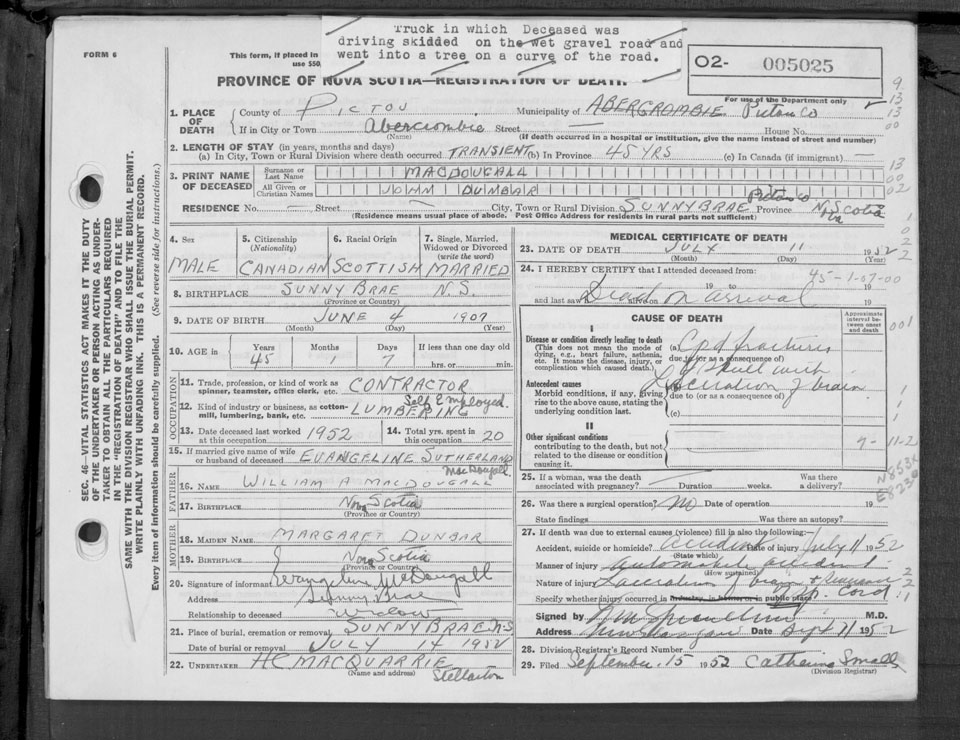 Truck in which Deceased was
driving skidded on the wet gravel road and
went into a tree on a curve of the road.
FORM 6
This form, if placed in
use $50,
O2- 005025
PROVINCE OF NOVA SCOTIA—REGISTRATION OF DEATH.
For use of the Department only
1. PLACE OF DEATH
County of PICTOU Municipality of ABERCROMBIE Pictou Co
If in City or Town Abercrombie Street House No.
(Name) (If death occurred in a hospital or institution, give the name instead of street and number)
2. LENGTH OF STAY (in years, months and days)
(a) In City, Town or Rural Division where death occurred TRANSIENT (b) In Province 45 YRS (c) In Canada (if immigrant) —
3. PRINT NAME OF DECEASED
Surname or Last Name MACDOUGALL
All Given or Christian Names JOHN DUNBAR
RESIDENCE No. — Street City, Town or Rural Division SUNNYBRAE Pictou Co Province Nova Scotia
(Residence means usual place of abode. Post Office Address for residents in rural parts not sufficient)
4. Sex
MALE
5. Citizenship
(Nationality)
CANADIAN
6. Racial Origin
SCOTTISH
7. Single, Married,
Widowed or Divorced
(write the word)
MARRIED
8. BIRTHPLACE SUNNY BRAE N.S.
(Province or Country)
9. DATE OF BIRTH JUNE 4 1907
(Month) (Day) (Year)
10. AGE in
Years Months Days If less than one day old
45 1 7 hrs. or min.
OCCUPATION
11. Trade, profession, or kind of work as
spinner, teamster, office clerk, etc. CONTRACTOR
12. Kind of industry or business, as cotton-
mill, lumbering, bank, etc. LUMBERING Self Employed.
13. Date deceased last worked
at this occupation 1952
14. Total yrs. spent in
this occupation 20
15. If married give name of wife
or husband of deceased EVANGELINE SUTHERLAND
MacDougall
FATHER
16. NAME WILLIAM A MACDOUGALL
17. BIRTHPLACE Nova Scotia
(Province or Country)
MOTHER
18. MAIDEN NAME MARGARET DUNBAR
19. BIRTHPLACE Nova Scotia
(Province or Country)
20. Signature of informant Evangeline McDougall
Address Sunny Brae
Relationship to deceased widow
21. Place of burial, cremation or removal SUNNYBRAE N.S
Date of burial or removal JULY 14 1952
22. UNDERTAKER H C MACQUARRIE
(Name and address) Stellarton
MEDICAL CERTIFICATE OF DEATH
23. DATE OF DEATH JULY 11 1952
(Month) (Day) (Year)
24. I HEREBY CERTIFY that I attended deceased from:
45-1-07-00
19 to 19
and last saw alive on 19
Dead on arrival
CAUSE OF DEATH
Approximate
interval be-
tween onset
and death
I
Disease or condition directly leading to death
(This does not mean the mode of
dying, e.g., heart failure, asthenia,
etc. It means the disease, injury, or
complication which caused death.)
(a) Cpd fractures
due to (or as a consequence of)
of skull with
Antecedent causes
Morbid conditions, if any, giving
rise to the above cause, stating the
underlying condition last.
(b) Laceration of brain
due to (or as a consequence of)
(c)
II
Other significant conditions
contributing to the death, but not
related to the disease or condition
causing it.
25. If a woman, was the death
associated with pregnancy? Duration weeks. Was there
a delivery?
26. Was there a surgical operation? No Date of operation 19
State findings Was there an autopsy?
27. If death was due to external causes (violence) fill in also the following:
Accident, suicide or homicide? accident Date of injury July 11 1952
(State which)
Manner of injury automobile accident
(How sustained)
Nature of injury Laceration of brain +
Specify whether injury occurred in industry, in home or in public place cord
Signed by M.D.
Address New Glasgow Date Sept 11 1952
28. Division Registrar's Record Number
29. Filed September 15 1952 Catherine Small
(Division Registrar)
SEC. 46—VITAL STATISTICS ACT MAKES IT THE DUTY
OF THE UNDERTAKER OR PERSON ACTING AS UNDER-
TAKER TO OBTAIN ALL THE PARTICULARS REQUIRED
IN THE "REGISTRATION OF DEATH" AND TO FILE THE
SAME WITH THE DIVISION REGISTRAR WHO SHALL ISSUE THE BURIAL PERMIT.
WRITE PLAINLY WITH UNFADING INK. THIS IS A PERMANENT RECORD.
Every item of information should be carefully supplied. (See reverse side for instructions.)